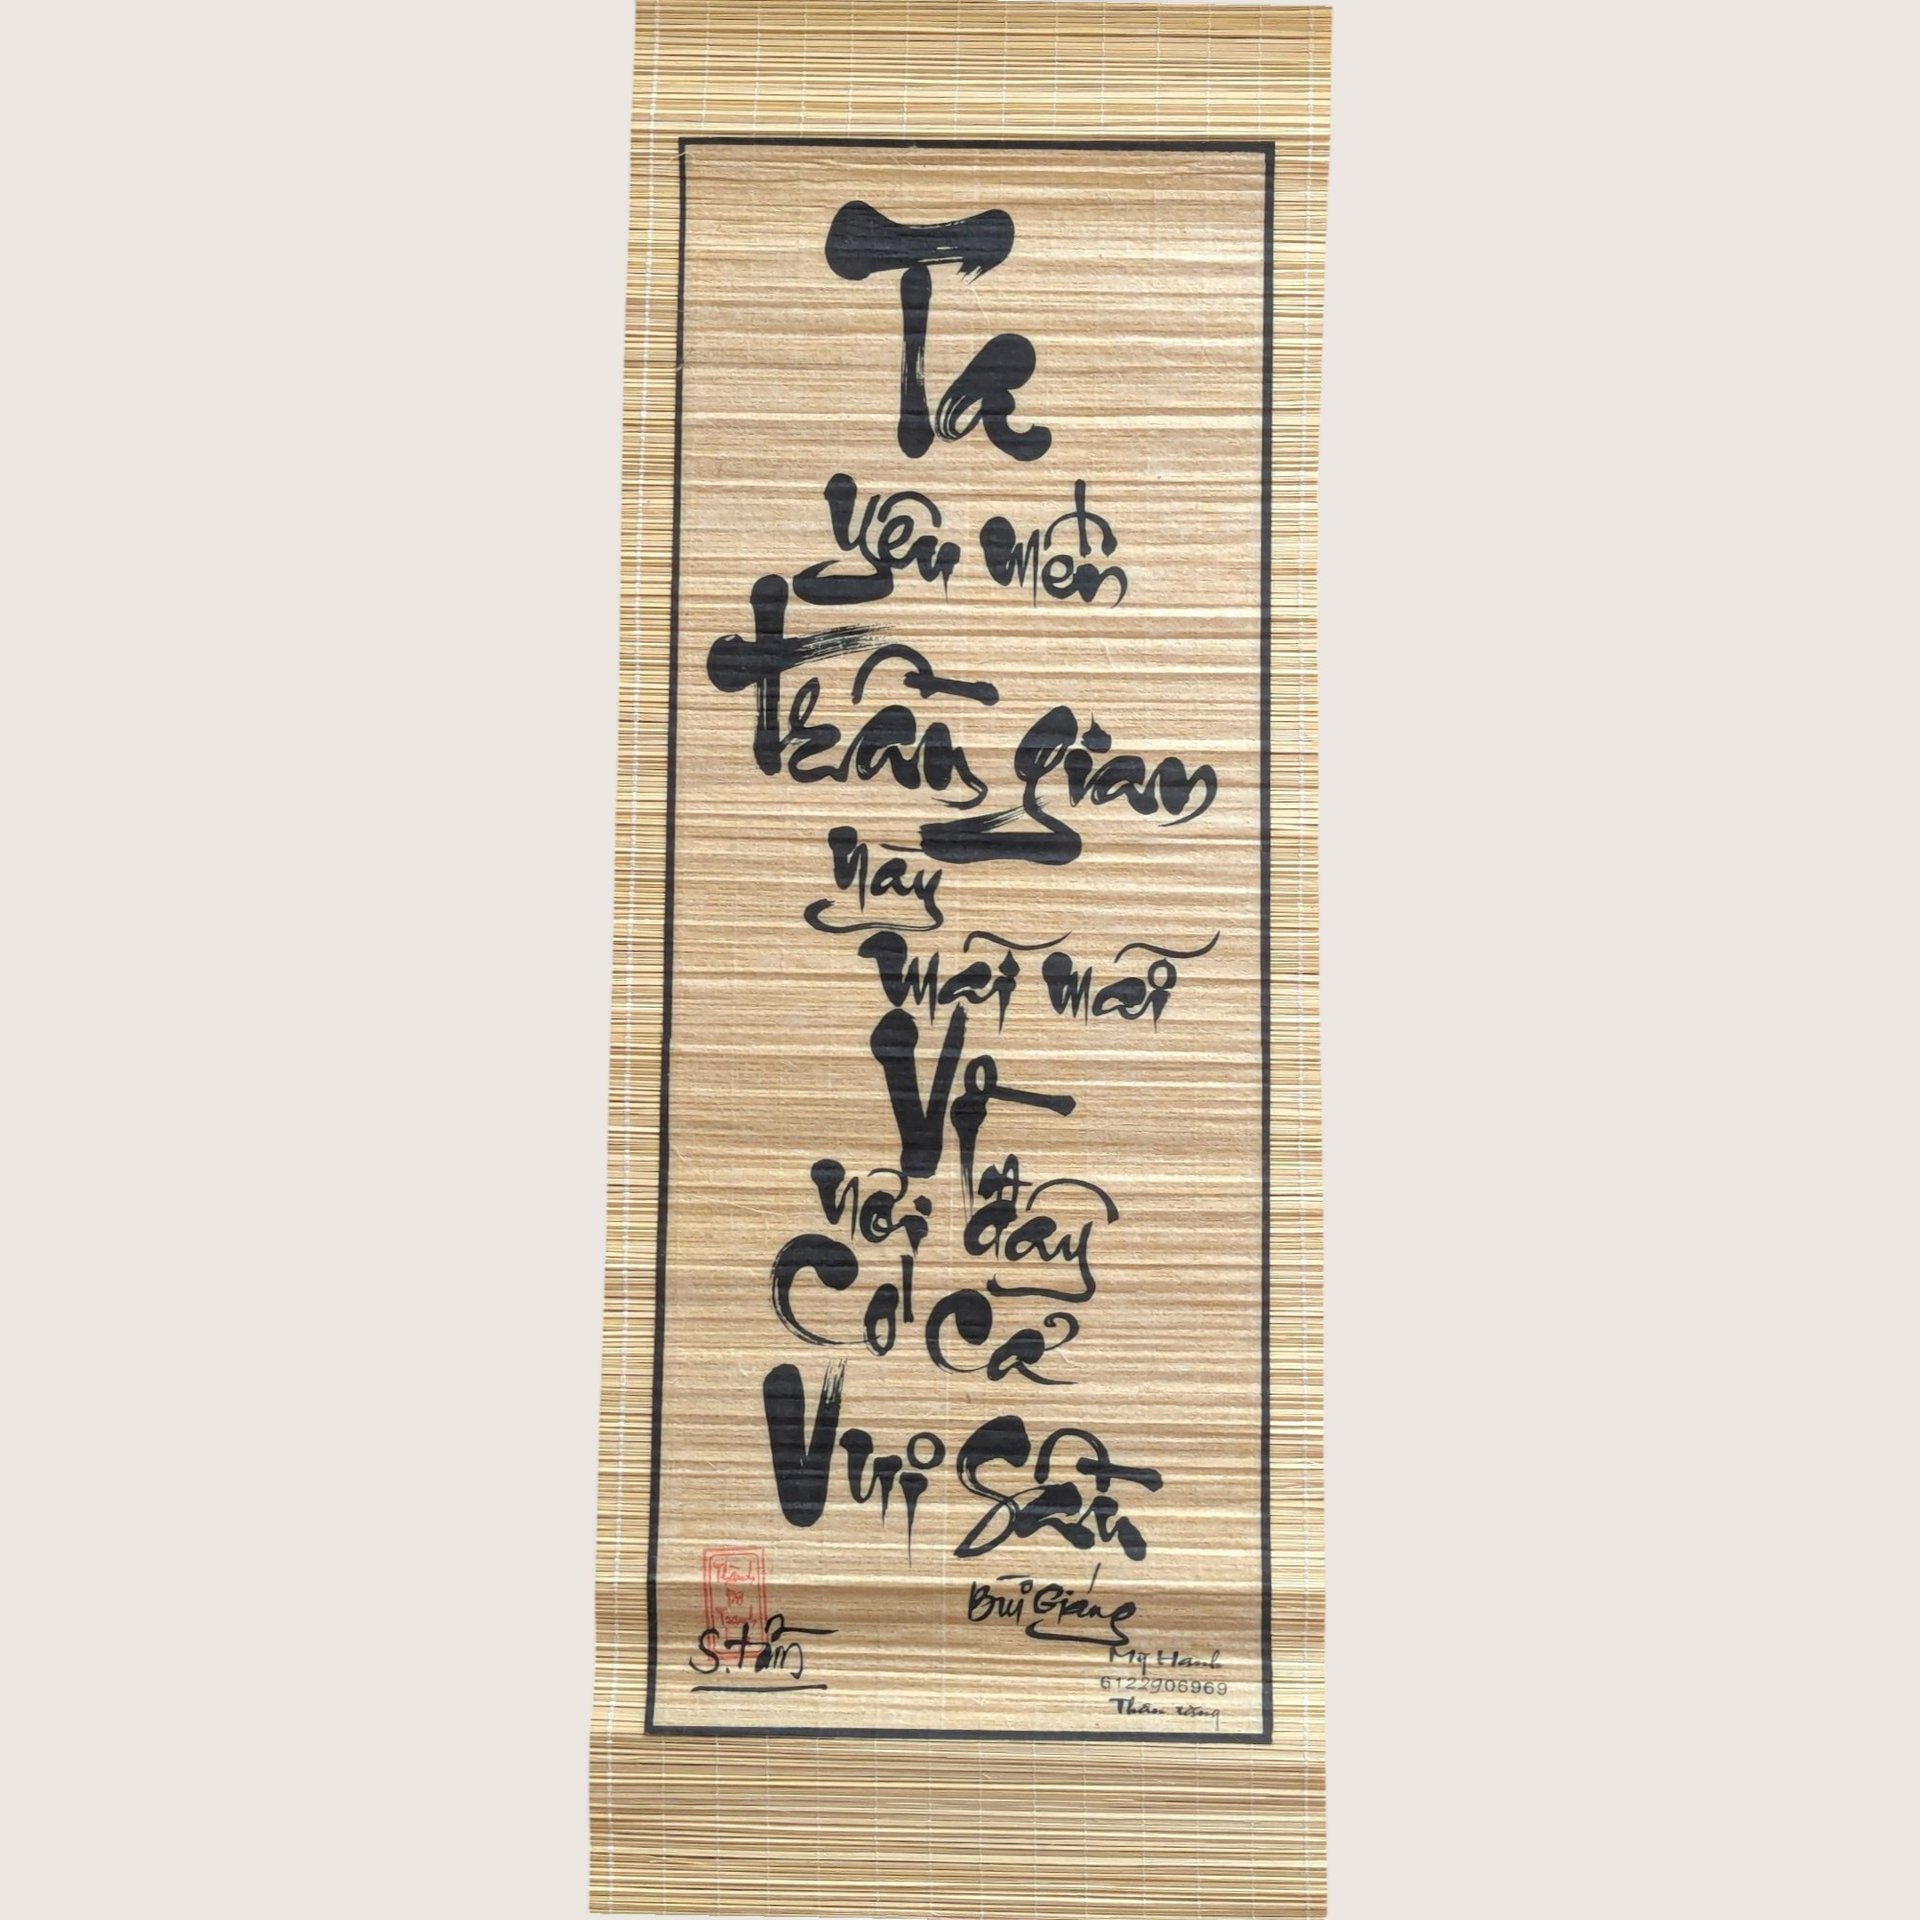 Ta
yêu mến
trần gian
này
mãi mãi
Vì
nơi đây
Có cả
Vui Sầu
Bùi Giáng
S. tấn
Mỹ Hạnh
6122906969
Thân tặng